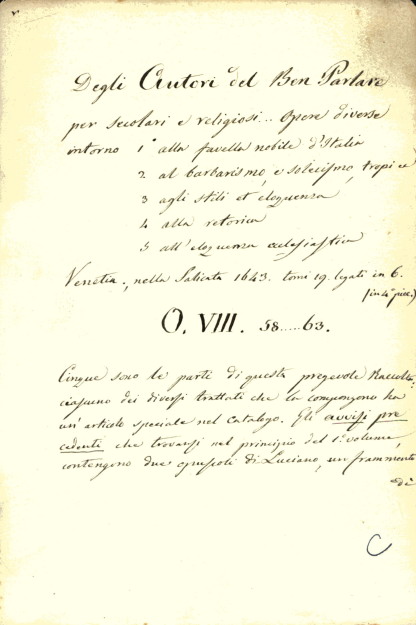 Degli Autori del Ben Parlare
per secolari e religiosi... Opere diverse
intorno 1° alla favella nobile d'Italia
2 al barbarismo, e solecismo, tropi e
3 agli stili et eloquenza
4 alla retorica
5 all'eloquenza eclesiastica
Venetia, nella Salicata 1643. tomi 19. legati in 6.
(in 4° picc.)
O. VIII. 58.....63.
Cinque sono le parti di questa pregevole Raccolta,
ciascuno dei diversi trattati che la compongono ha
un'articolo speciale nel catalogo. Gli avvisi pre
cedenti che trovansi nel principio del 1° volume,
contengono due opuscoli di Luciano, un frammento
di
C